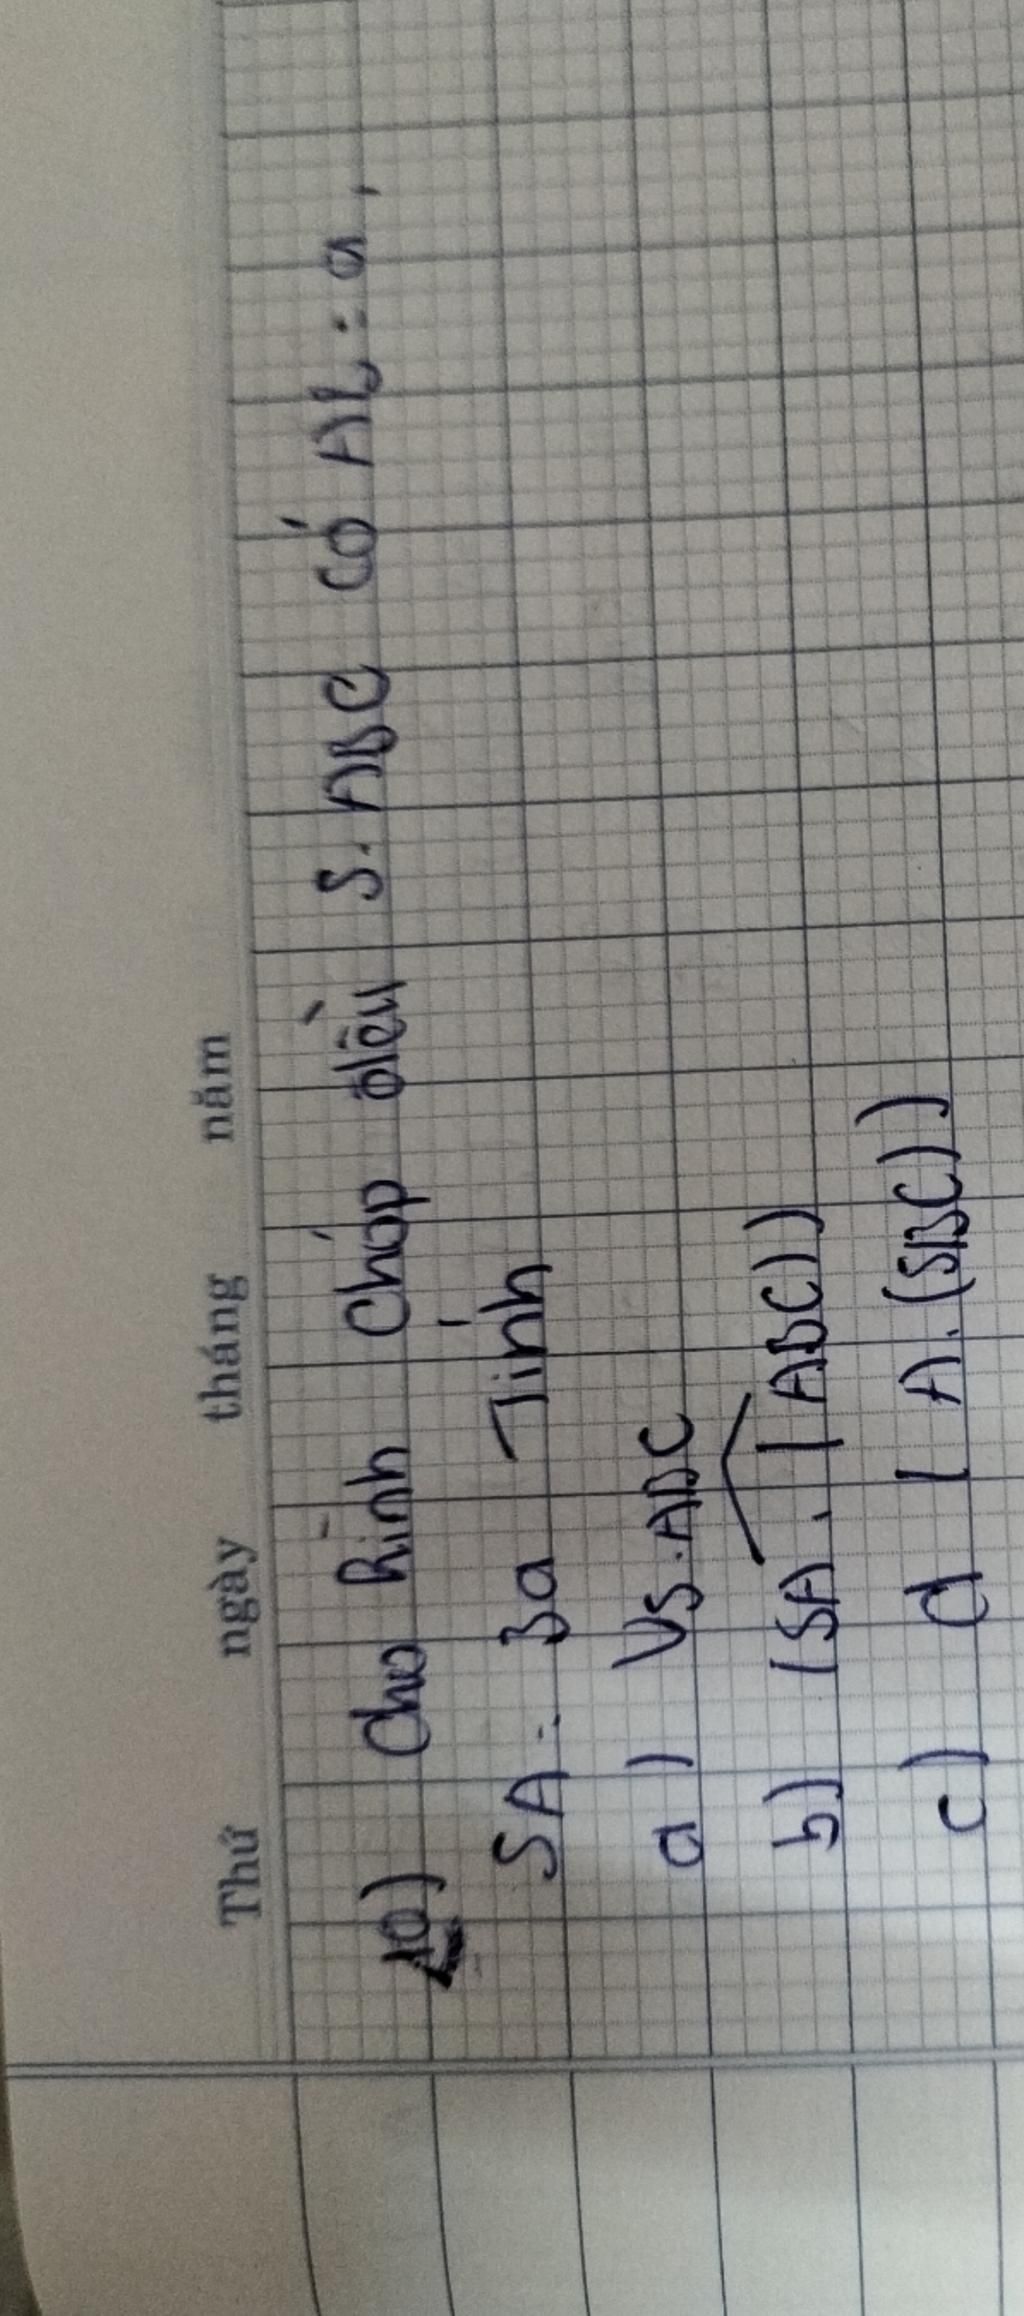 Thứ ngày tháng năm
10) Cho hình chóp đều S.ABC có AB = a,
SA = 3a Tính
a) VS.ABC
b) (SA, (ABC))
c) d (A.(SBC))